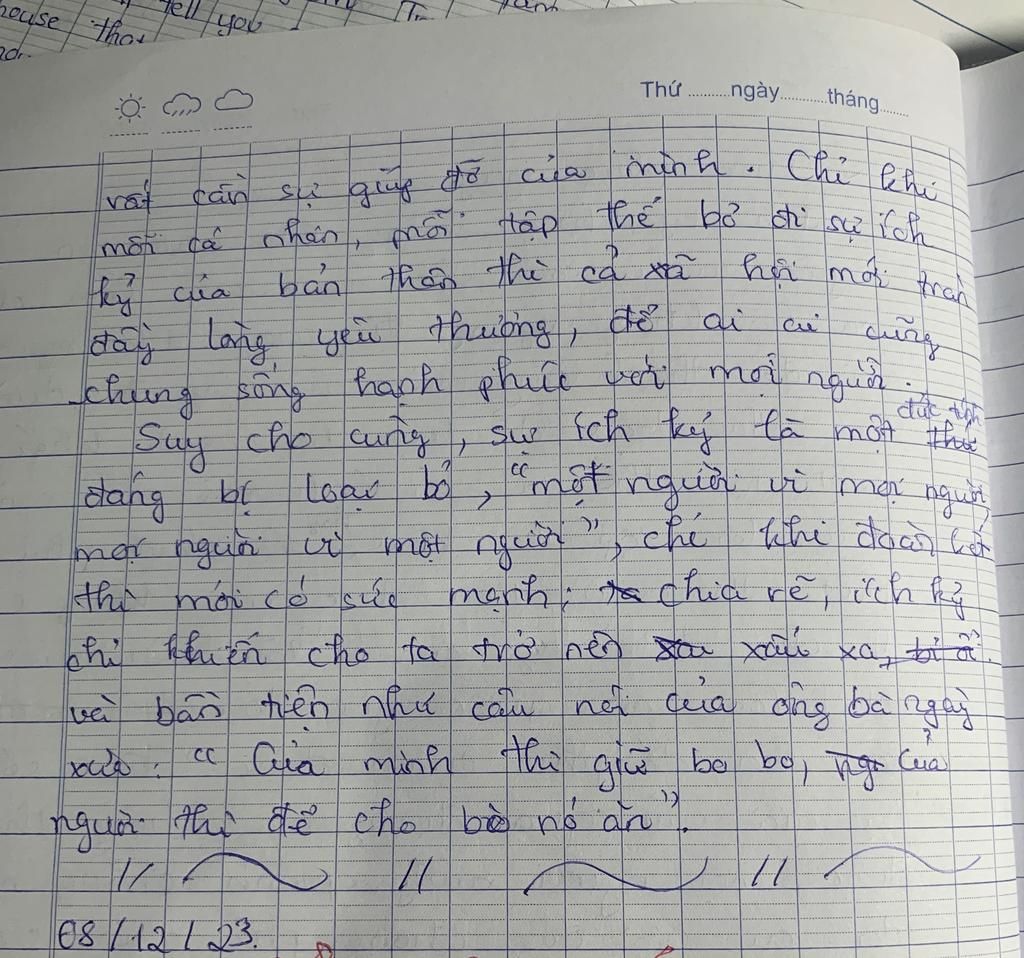 house thơ tell you
Thứ ..........ngày..........tháng........
rất cần sự giúp đỡ của mình. Chỉ khi
mỗi cá nhân, mỗi tập thể bỏ đi sự ích
kỷ của bản thân thì cả xã hội mới tràn
đầy lòng yêu thương, để ai ai cũng
chung sống hạnh phúc với mọi người.
Suy cho cùng, sự ích kỷ là một đức tính
đáng bị loại bỏ, "một người vì mọi người,
mọi người vì một người", chỉ khi đoàn kết
thì mới có sức mạnh; chia rẽ, ích kỷ
chỉ khiến cho ta trở nên xấu xa,
và bần tiện như câu nói của ông bà ngày
xưa: "Của mình thì giữ bo bo, Của
người thì để cho bò nó ăn".
08/12/23.